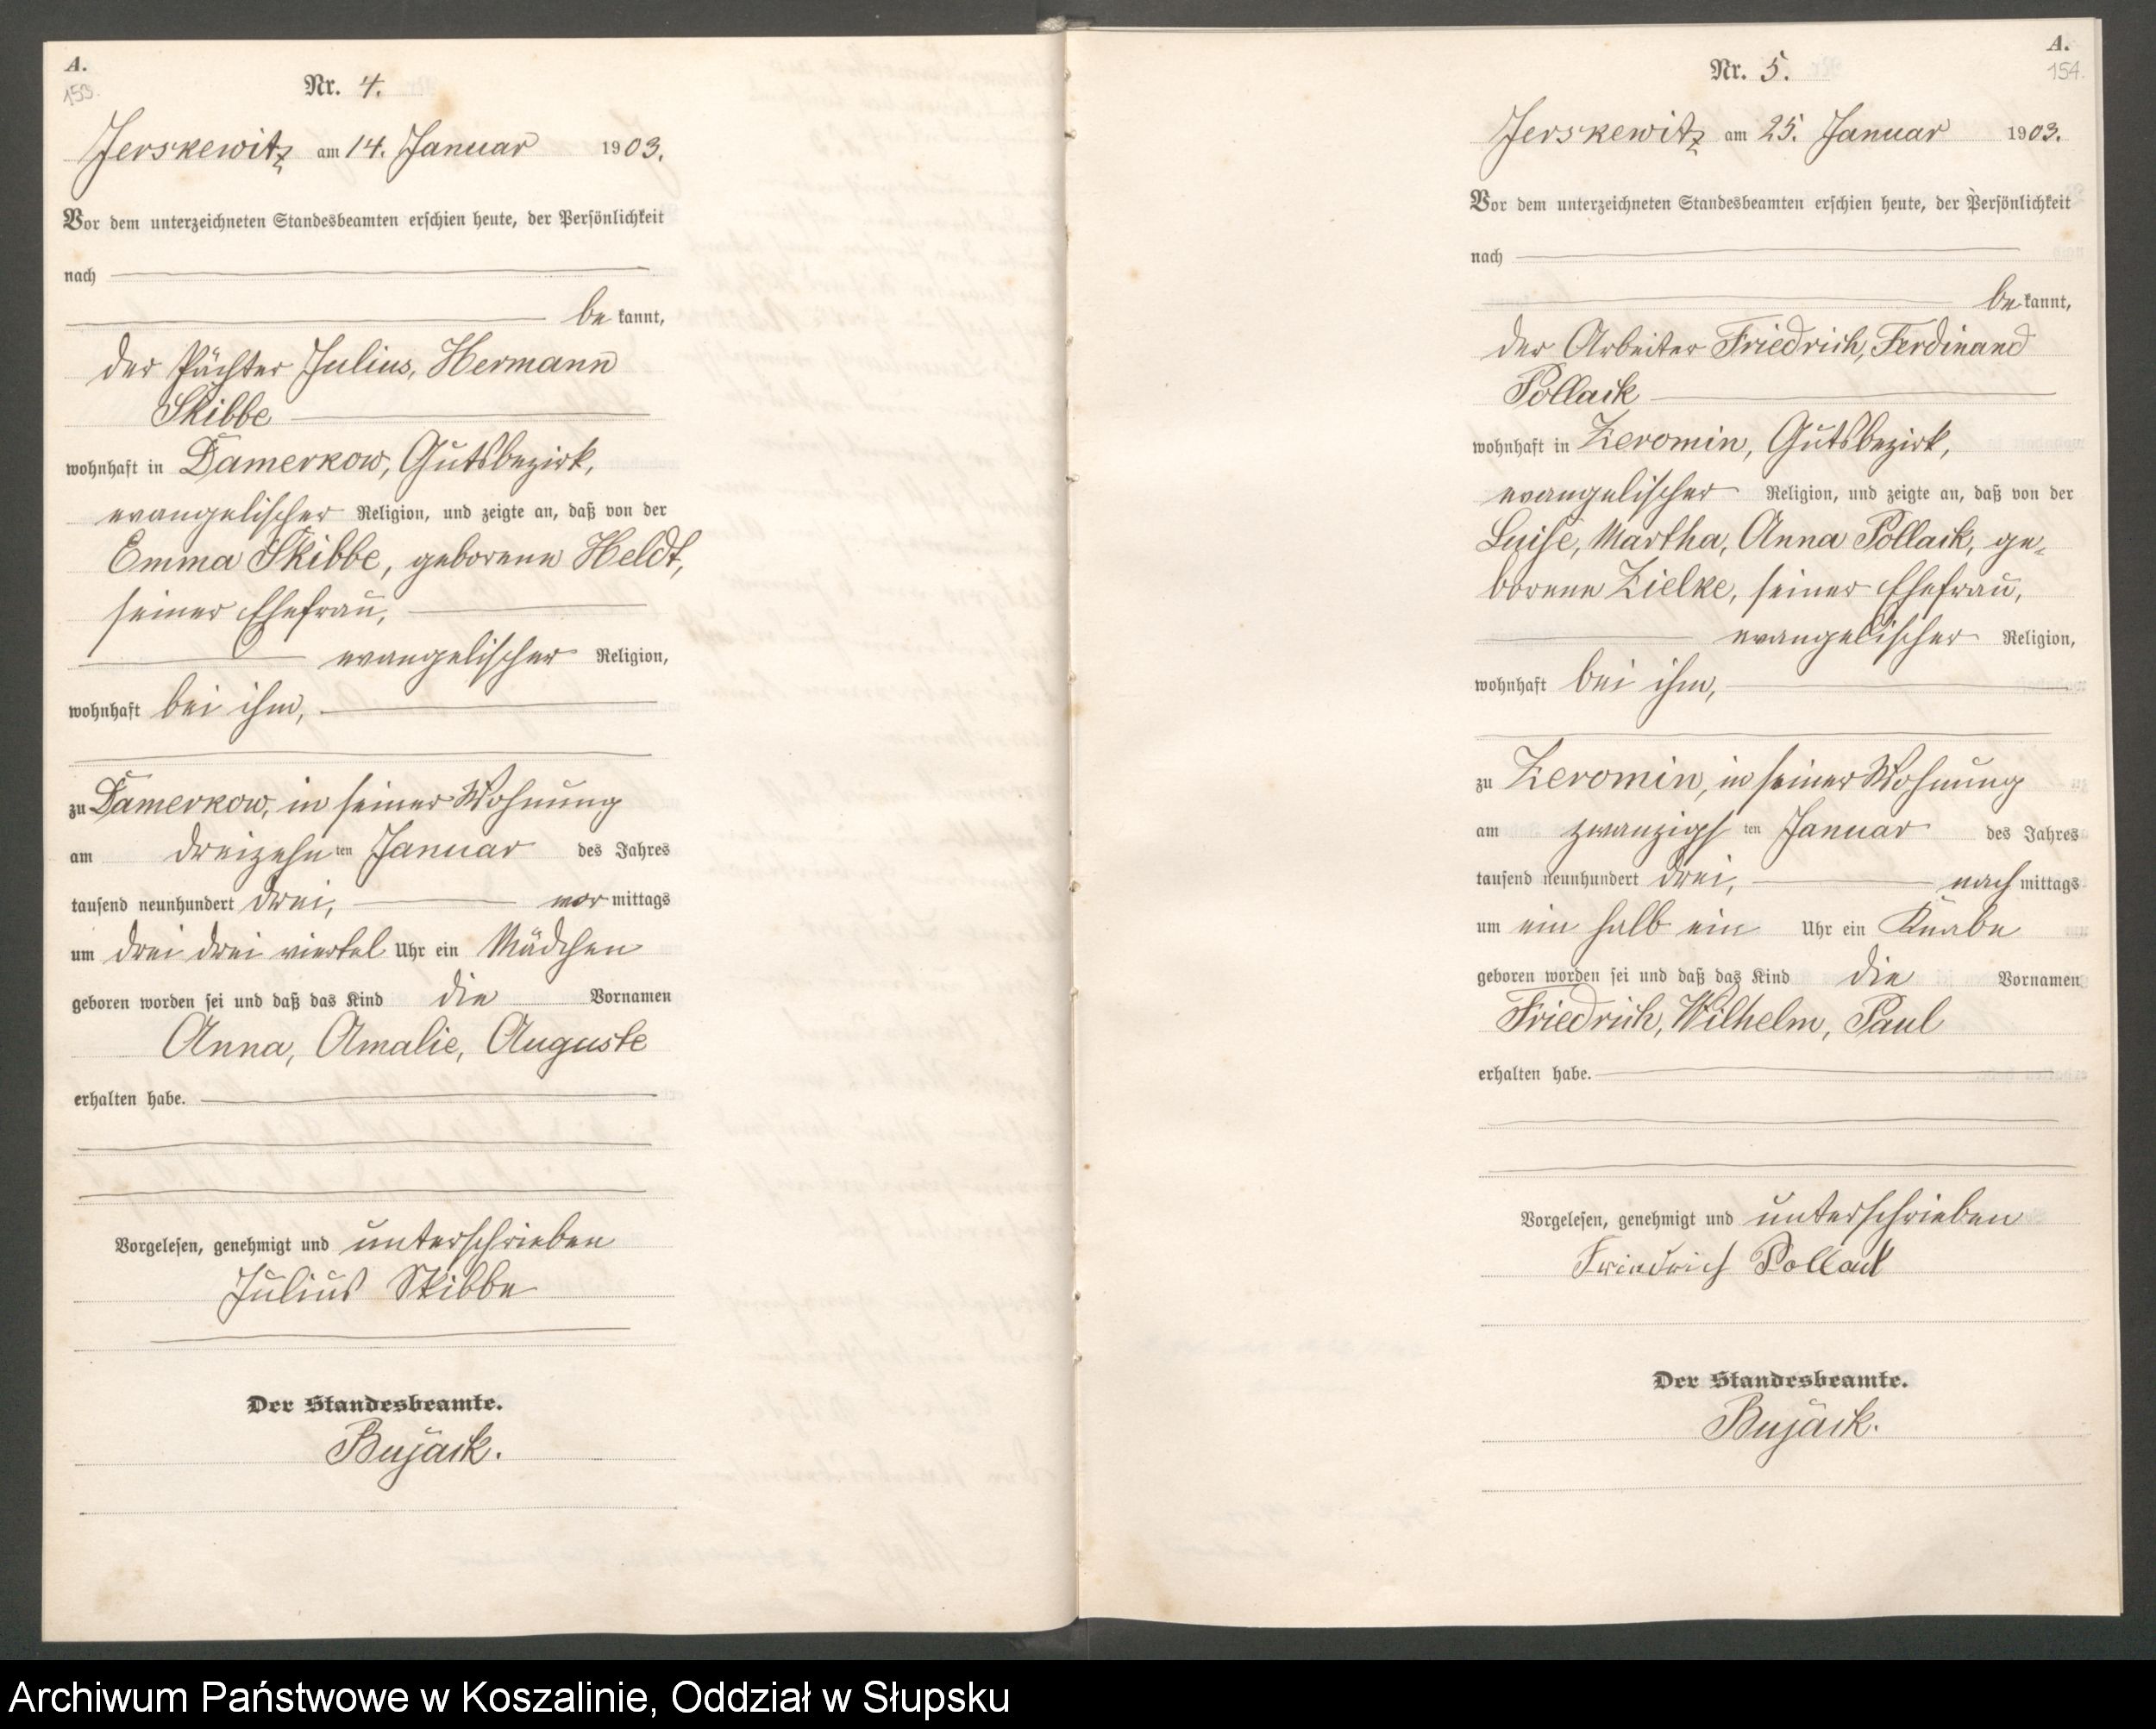 A.
153.
Nr. 4.
Jerskewitz am 14. Januar 1903.
Vor dem unterzeichneten Standesbeamten erschien heute, der Persönlichkeit
nach
be kannt,
der Pächter Julius, Hermann
Skibbe
wohnhaft in Damerkow, Gutsbezirk,
evangelischer Religion, und zeigte an, daß von der
Emma Skibbe, geborene Heldt,
seiner Ehefrau,
evangelischer Religion,
wohnhaft bei ihm,
zu Damerkow, in seiner Wohnung
am dreizehn ten Januar des Jahres
tausend neunhundert drei, vor mittags
um drei drei viertel Uhr ein Mädchen
geboren worden sei und daß das Kind die Vornamen
Anna, Amalie, Auguste
erhalten habe.
Vorgelesen, genehmigt und unterschrieben
Julius Skibbe
Der Standesbeamte.
Bujack.
A.
154.
Nr. 5.
Jerskewitz am 25. Januar 1903.
Vor dem unterzeichneten Standesbeamten erschien heute, der Persönlichkeit
nach
be kannt,
der Arbeiter Friedrich, Ferdinand
Pollack
wohnhaft in Zeromin, Gutsbezirk,
evangelischer Religion, und zeigte an, daß von der
Luise, Martha, Anna Pollack, ge-
borene Zielke, seiner Ehefrau,
evangelischer Religion,
wohnhaft bei ihm,
zu Zeromin, in seiner Wohnung
am zwanzigs ten Januar des Jahres
tausend neunhundert drei, nach mittags
um ein halb ein Uhr ein Knabe
geboren worden sei und daß das Kind die Vornamen
Friedrich, Wilhelm, Paul
erhalten habe.
Vorgelesen, genehmigt und unterschrieben
Friedrich Pollack
Der Standesbeamte.
Bujack.
Archiwum Państwowe w Koszalinie, Oddział w Słupsku